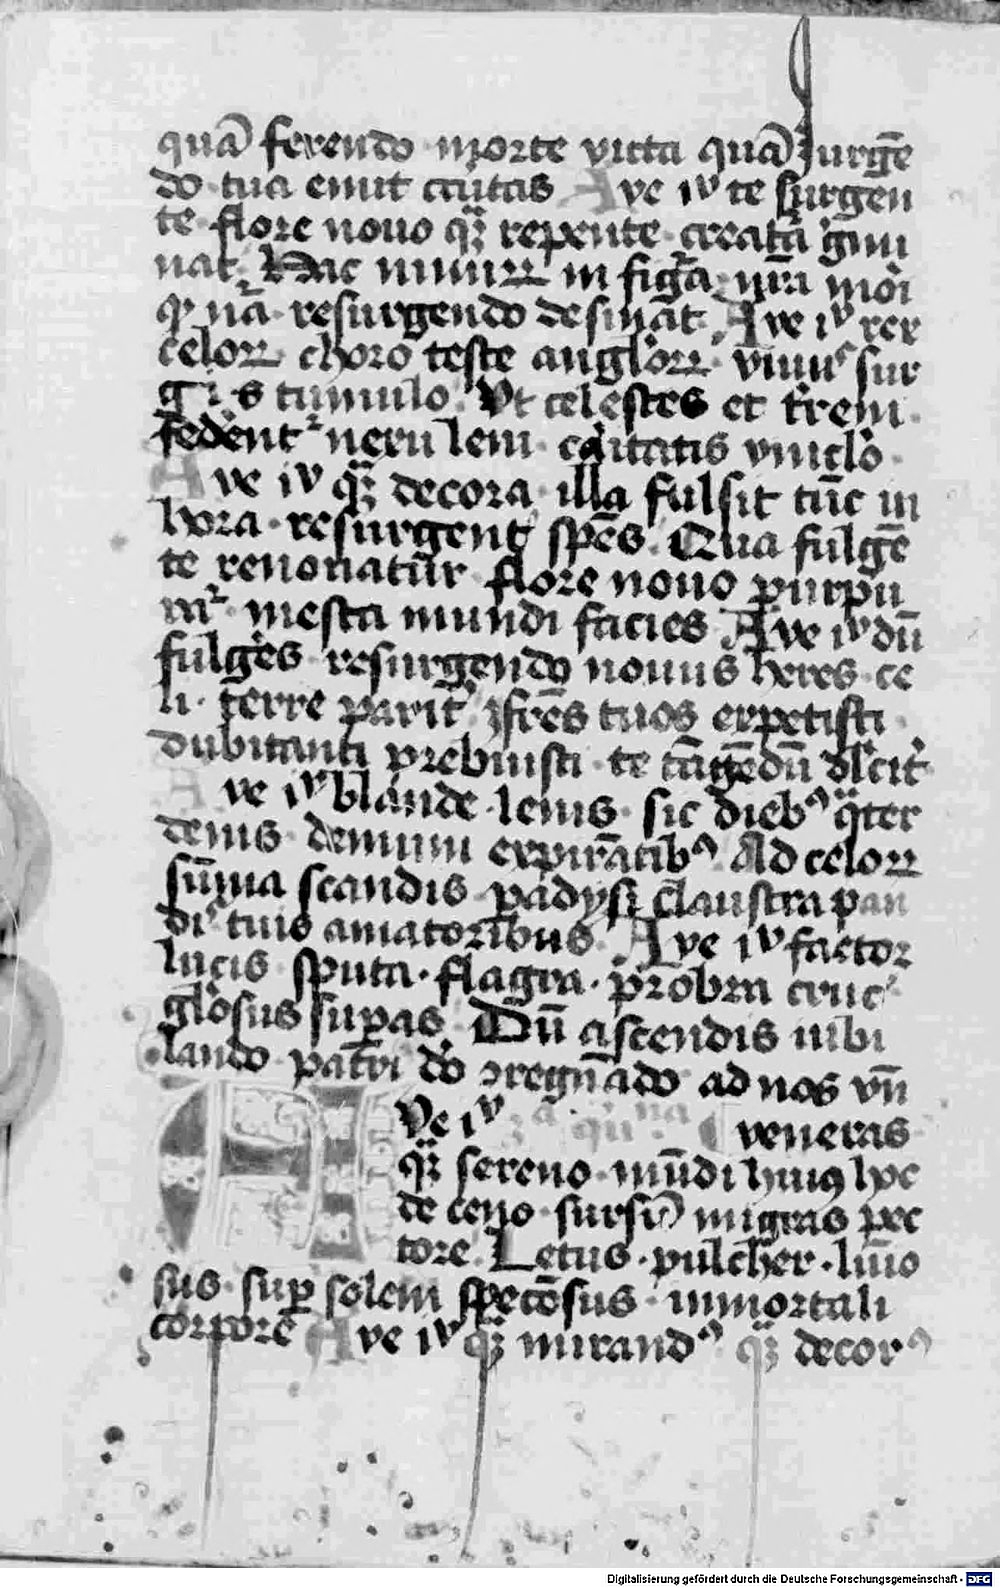 quā ferendo morte victa quā surgē
do tua emit caritas Ave iħu te surgen
te flore nouo q̃ repente creatā gmi
nat. Hac
resurgendo desinat. Ave iħu rex
celoꝝ choro teste anglōꝝ viuus sur
gis tumulo. Vt celestes et
caritatis vniclō
Ave iħu q̃ decora illa fulsit tūc in
hora resurgent spēs. Qua fulgē
te renouatur flore nouo purpu
rat mesta mundi facies Ave iħu dū
fulges resurgendo nouus heres ce
li terre parit ꝯfrēs tuos expetisti
dubitanti prebuisti te tāgēdū dlcit̾
Ave iħu blande lenis sic diebꝰ q̃ter
denis demum expirātibꝰ Ad celoꝝ
sūma scandis padysi claustra pan
dis tuis amatoribus. Ave iħu factor
lucis sputa flagra probra cruc̾
glōsus supas. Dū ascendis iubi
lando patri do ꝯregnādo ad nos vn̄
Ave iħu veneras
q̃ sereno mūdi huiꝰ hoc
de ceno sursū migras pec
tore Letus pulcher lūio
sus sup solem specōsus immortali
corpore Ave iħu q̃ mirandꝰ q̃ decorꝰ
Digitalisierung gefördert durch die Deutsche Forschungsgemeinschaft - DFG